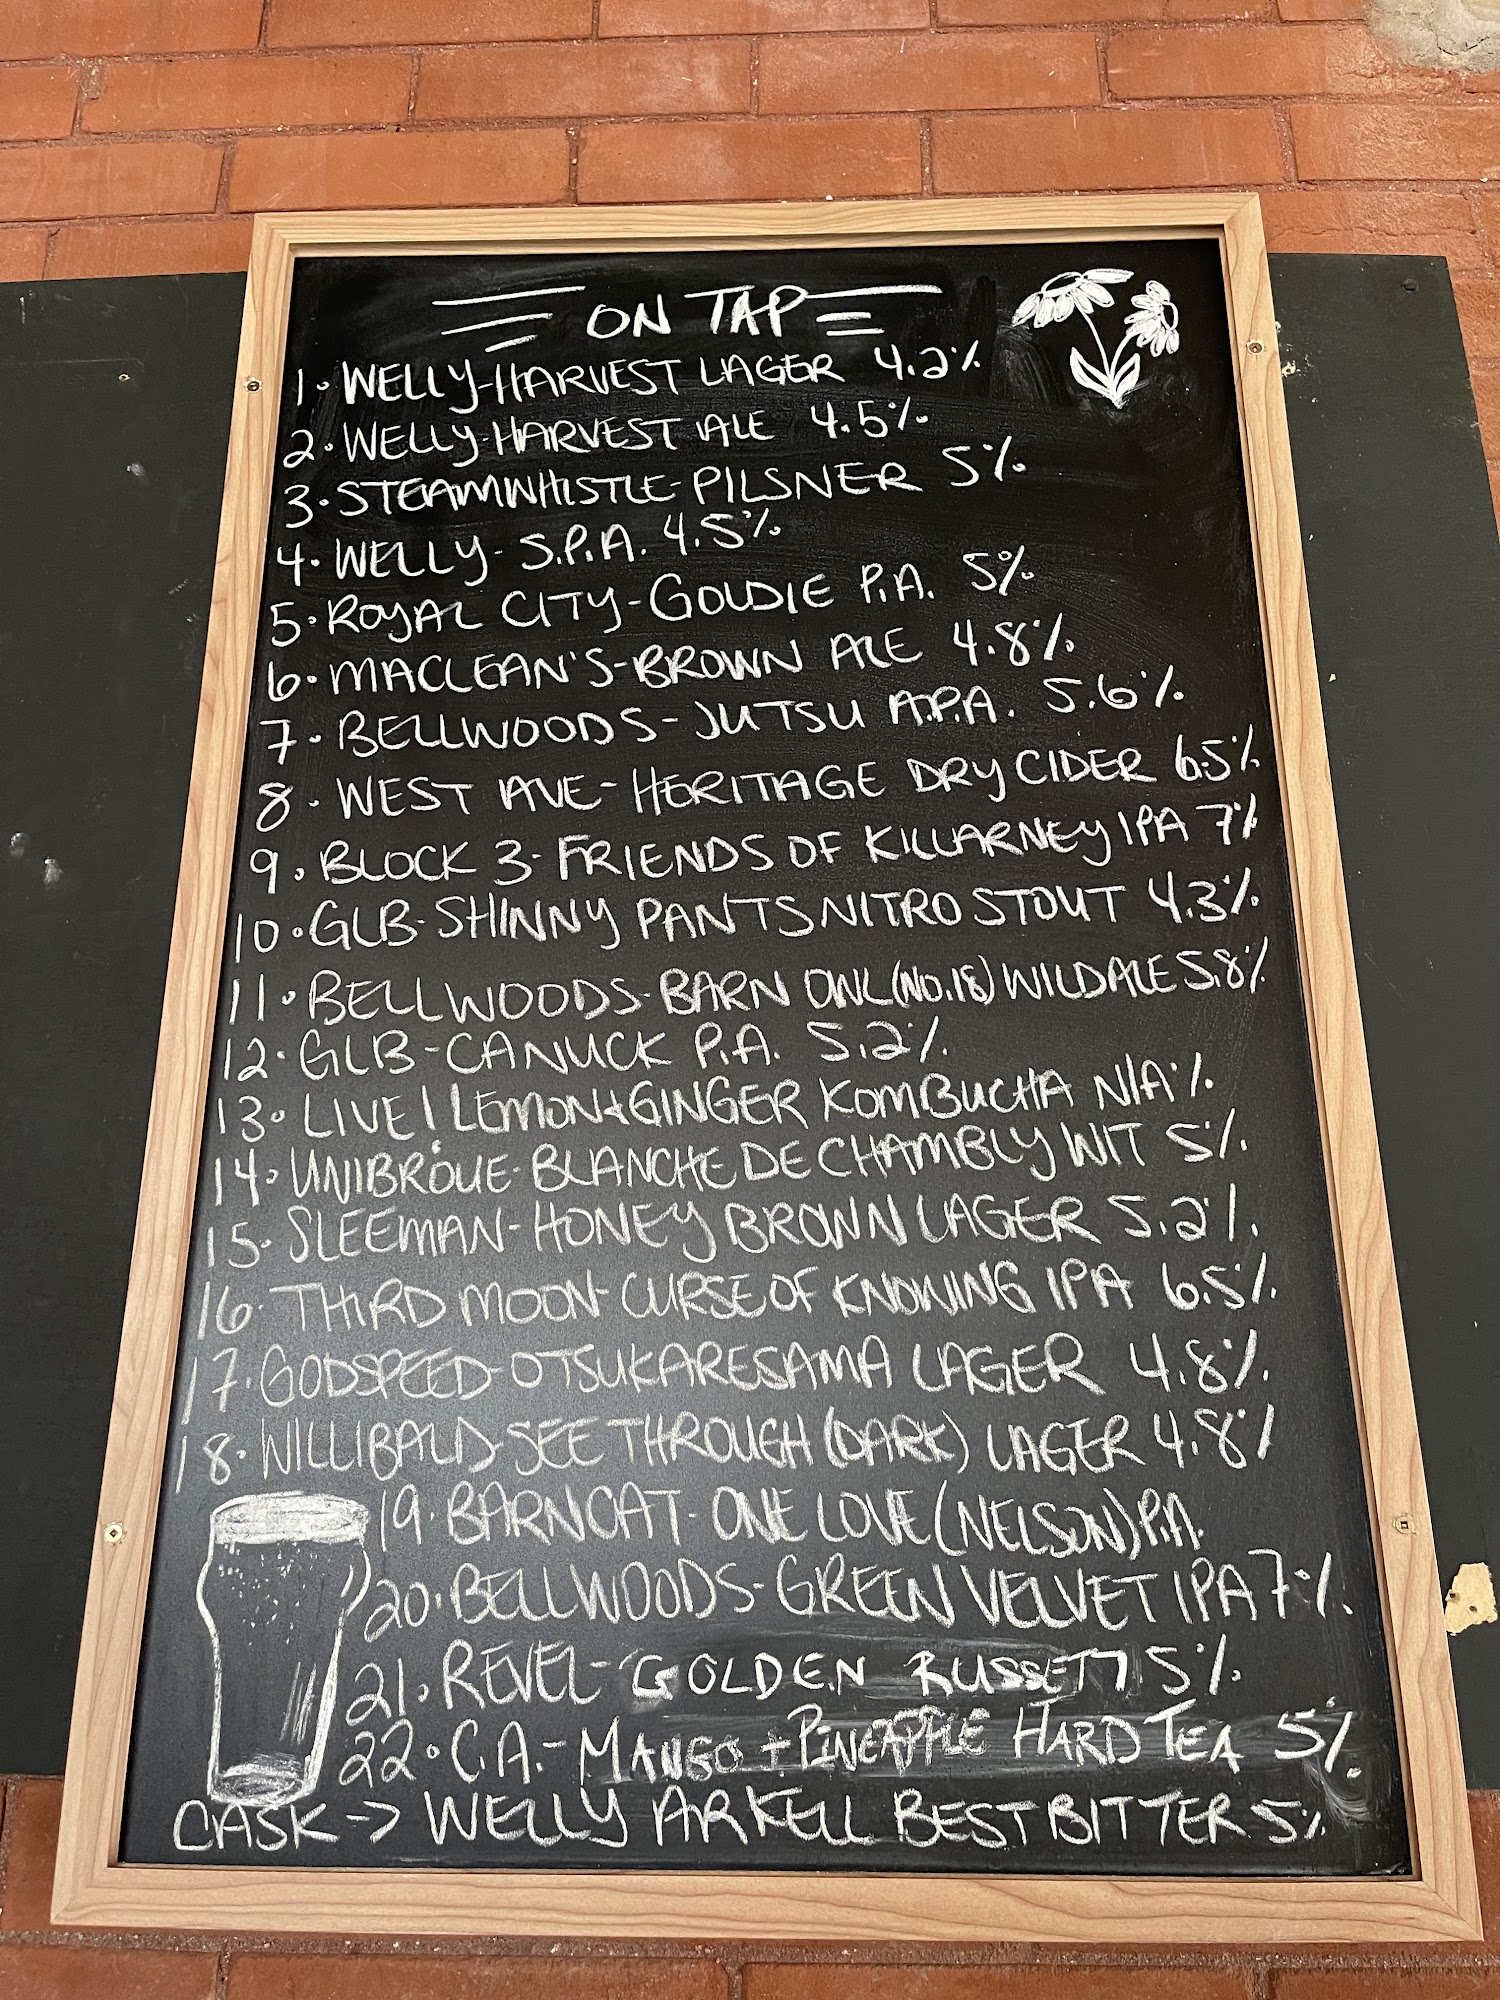 ON TAP
1. WELLY-HARVEST LAGER 4.2%
2. WELLY-HARVEST ALE 4.5%
3. STEAMWHISTLE-PILSNER 5%
4. WELLY- S.P.A. 4.5%
5. ROYAL CITY-GOLDIE P.A. 5%
6. MACLEAN'S-BROWN ALE 4.8%
7. BELLWOODS-JUTSU A.P.A. 5.6%
8. WEST AVE-HERITAGE DRY CIDER 6.5%
9. BLOCK 3-FRIENDS OF KILLARNEY IPA 7%
10. GLB-SHINNY PANTS NITRO STOUT 4.3%
11. BELLWOODS-BARN OWL (NO.18) WILD ALE 5.8%
12. GLB-CANUCK P.A. 5.2%
13. LIVE! LEMON+GINGER KOMBUCHA N/A%
14. UNIBROUE-BLANCHE DE CHAMBLY WIT 5%
15. SLEEMAN-HONEY BROWN LAGER 5.2%
16. THIRD MOON-CURSE OF KNOWING IPA 6.5%
17. GODSPEED-OTSUKARESAMA LAGER 4.8%
18. WILLIBALD-SEE THROUGH (DARK) LAGER 4.8%
19. BARNCAT-ONE LOVE (NELSON) P.A.
20. BELLWOODS-GREEN VELVET IPA 7%
21. REVEL-GOLDEN RUSSET 5%
22. C.A.-MANGO + PINEAPPLE HARD TEA 5%
CASK -> WELLY ARKELL BEST BITTER 5%